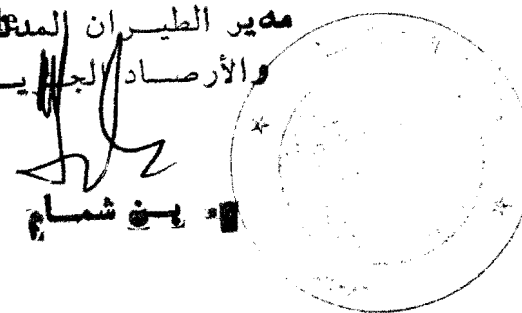 مدير الطيران المدني
والأرصاد الجوية
بن شمام